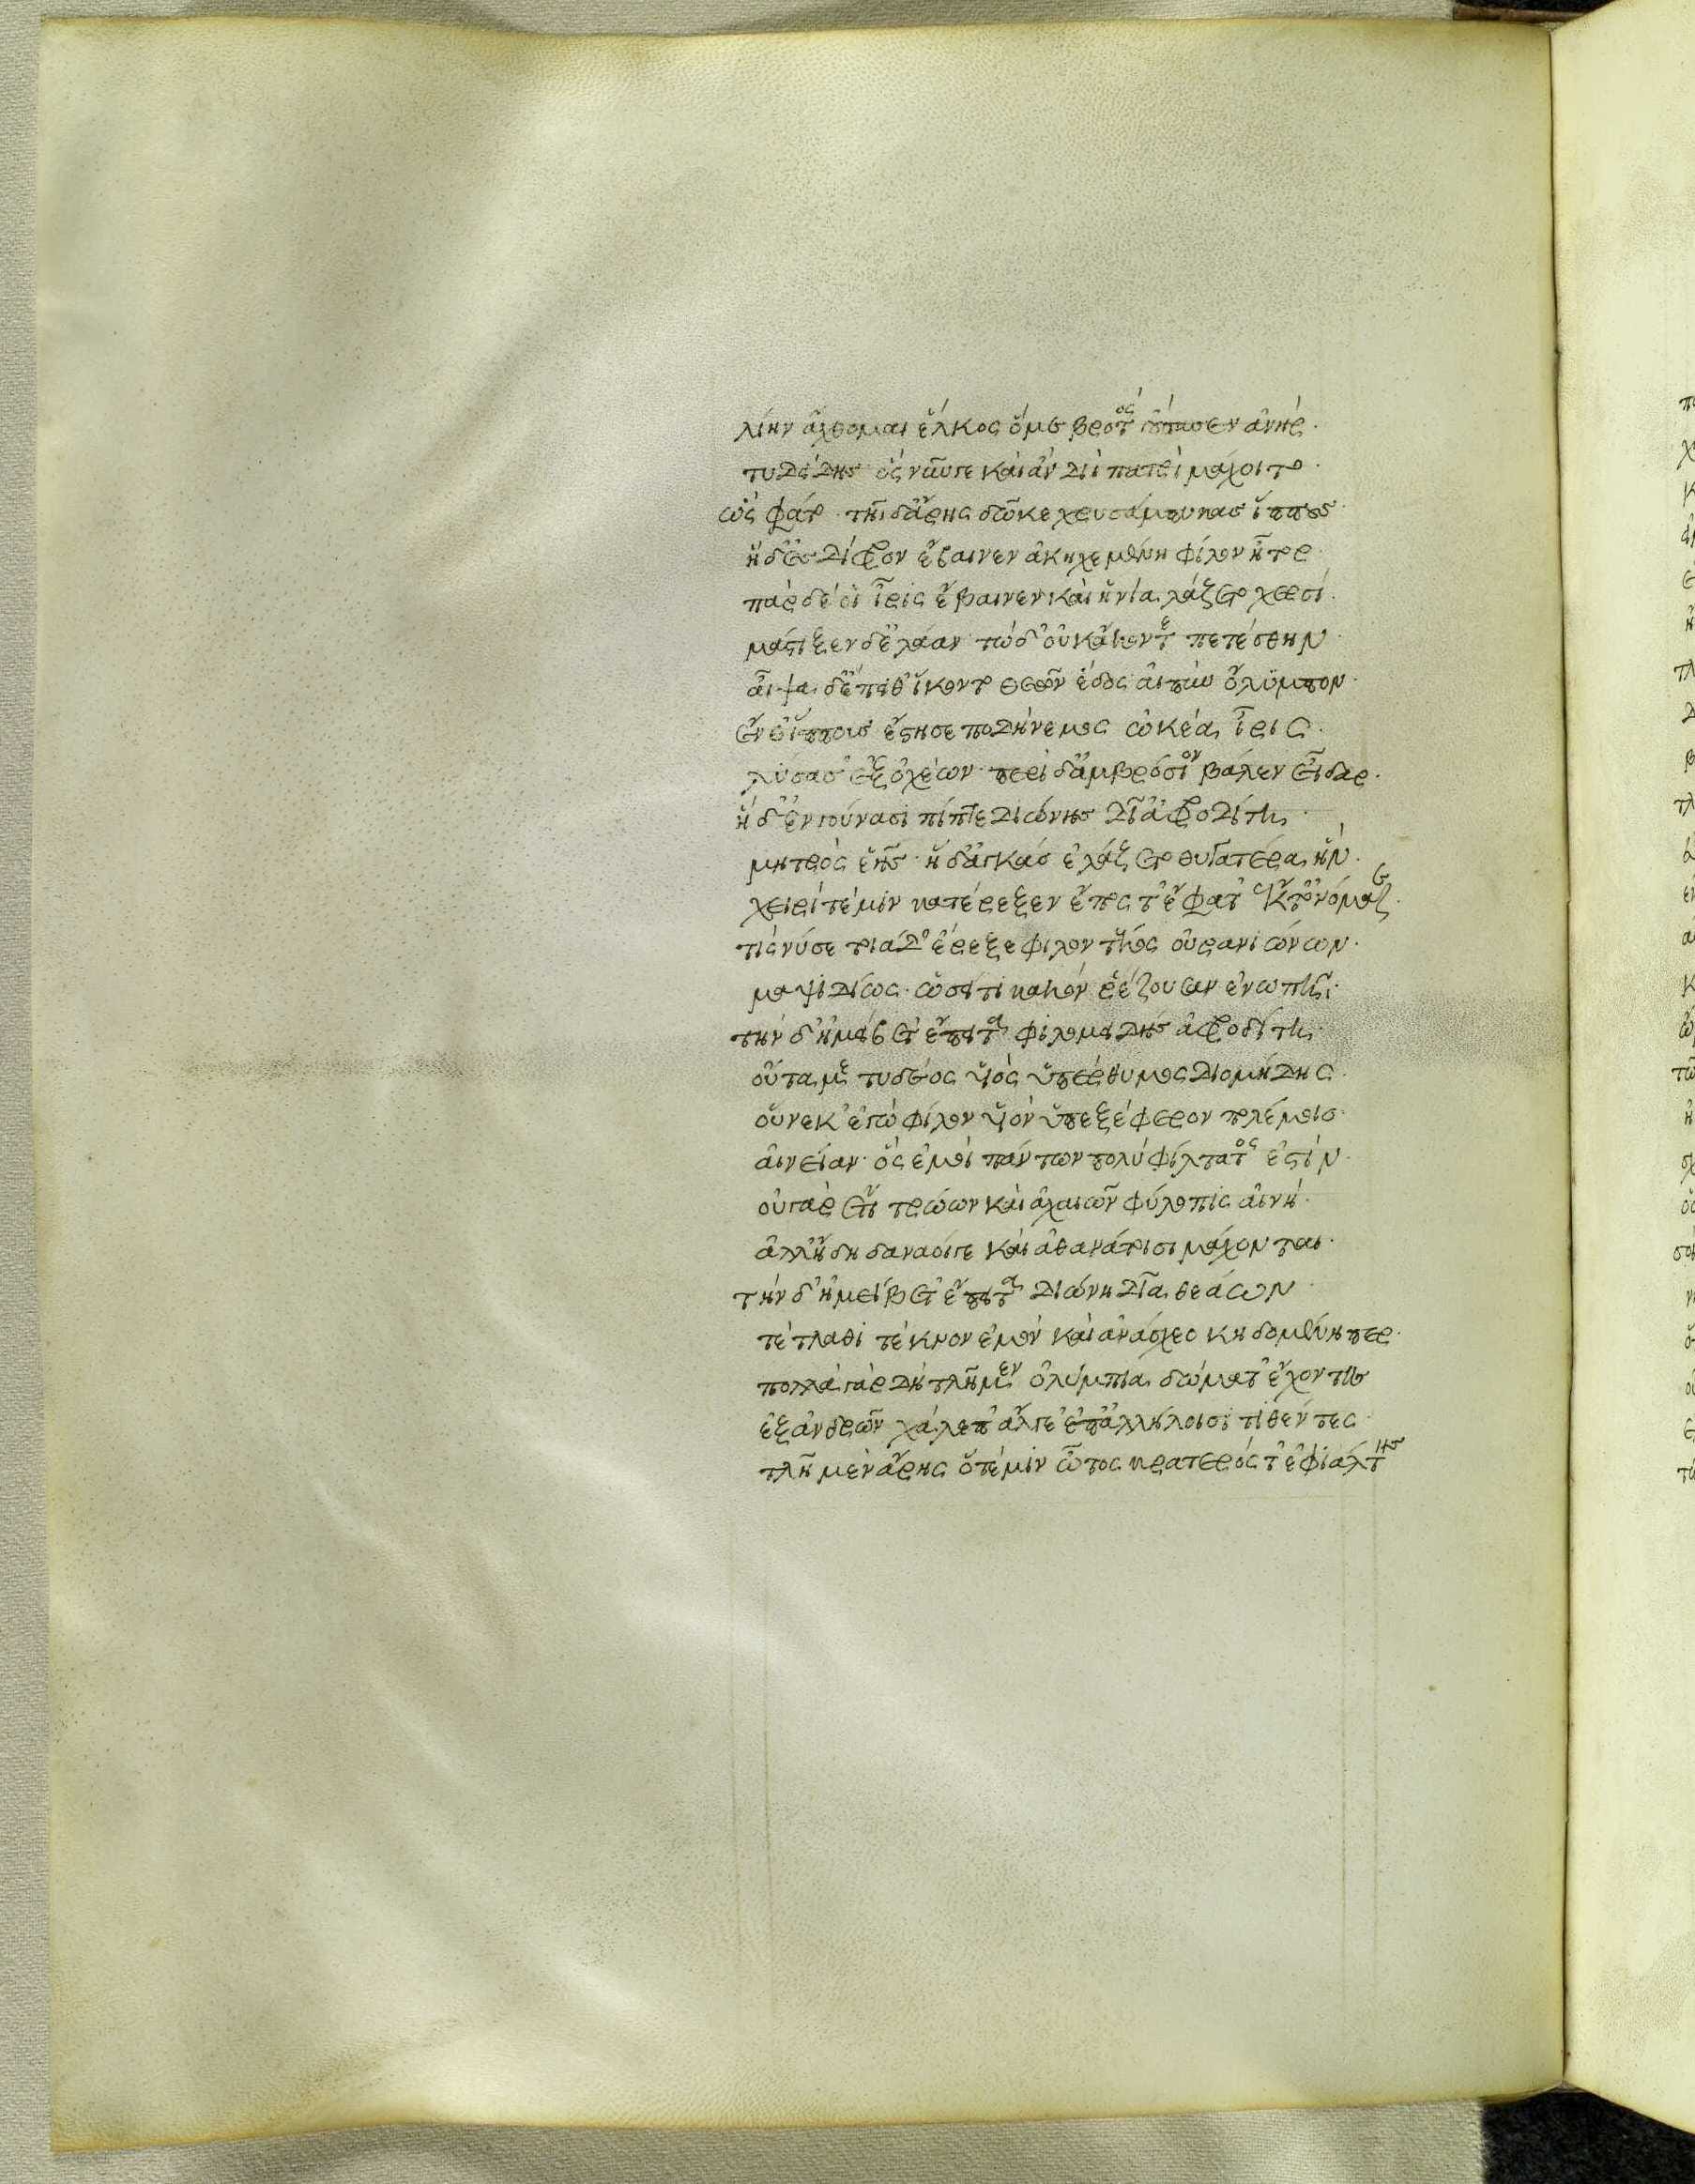 λίην ἄχθομαι ἕλκος ὅ με βροτὸς οὔτασεν ἀνήρ·
τυδείδης ὃς νῦν γε καὶ ἂν διὶ πατρὶ μάχοιτο·
ὣς φάτο· τῆι δ' ἄρης δῶκε χρυσάμπυκας ἵππους·
ἡ δ' ἐς δίφρον ἔβαινεν ἀκηχεμένη φίλον ἦτορ·
πὰρ δέ οἱ ἶρις ἔβαινεν καὶ ἡνία λάζετο χερσί·
μάστιξεν δ' ἐλάαν· τὼ δ' οὐκ ἄκοντε πετέσθην·
αἶψα δ' ἔπειθ' ἵκοντο θεῶν ἕδος αἰπὺν ὄλυμπον·
ἔνθ' ἵππους ἔστησε ποδήνεμος ὠκέα ἶρις·
λύσασ' ἐξ ὀχέων· περὶ δ' ἀμβρόσιον βάλεν εἶδαρ·
ἡ δ' ἐν γούνασι πίπτε διώνης δῖ' ἀφροδίτη·
μητρὸς ἑῆς· ἡ δ' ἀγκὰς ἐλάζετο θυγατέρα ἥν·
χειρί τέ μιν κατέρεξεν ἔπος τ' ἔφατ' ἔκ τ' ὀνόμαζε·
τίς νύ σε τοιάδ' ἔρεξε φίλον τέκος οὐρανιώνων·
μαψιδίως· ὡσεί τι κακὸν ῥέζουσαν ἐνωπῆι·
τὴν δ' ἠμείβετ' ἔπειτα φιλομειδὴς ἀφροδίτη·
οὖτά με τυδέος υἱὸς ὑπέρθυμος διομήδης·
οὕνεκ' ἐγὼ φίλον υἱὸν ὑπεξέφερον πολέμοιο·
αἰνείαν· ὃς ἐμοὶ πάντων πολὺ φίλτατός ἐστιν·
οὐ γὰρ ἔτι τρώων καὶ ἀχαιῶν φύλοπις αἰνή·
ἀλλ' ἤδη δαναοί γε καὶ ἀθανάτοισι μάχονται·
τὴν δ' ἠμείβετ' ἔπειτα διώνη δῖα θεάων
τέτλαθι τέκνον ἐμὸν καὶ ἀνάσχεο κηδομένη περ·
πολλοὶ γὰρ δὴ τλῆμεν ὀλύμπια δώματ' ἔχοντες
ἐξ ἀνδρῶν χαλέπ' ἄλγε' ἐπ' ἀλλήλοισι τιθέντες·
τλῆ μὲν ἄρης ὅτε μιν ὦτος κρατερός τ' ἐφιάλτης